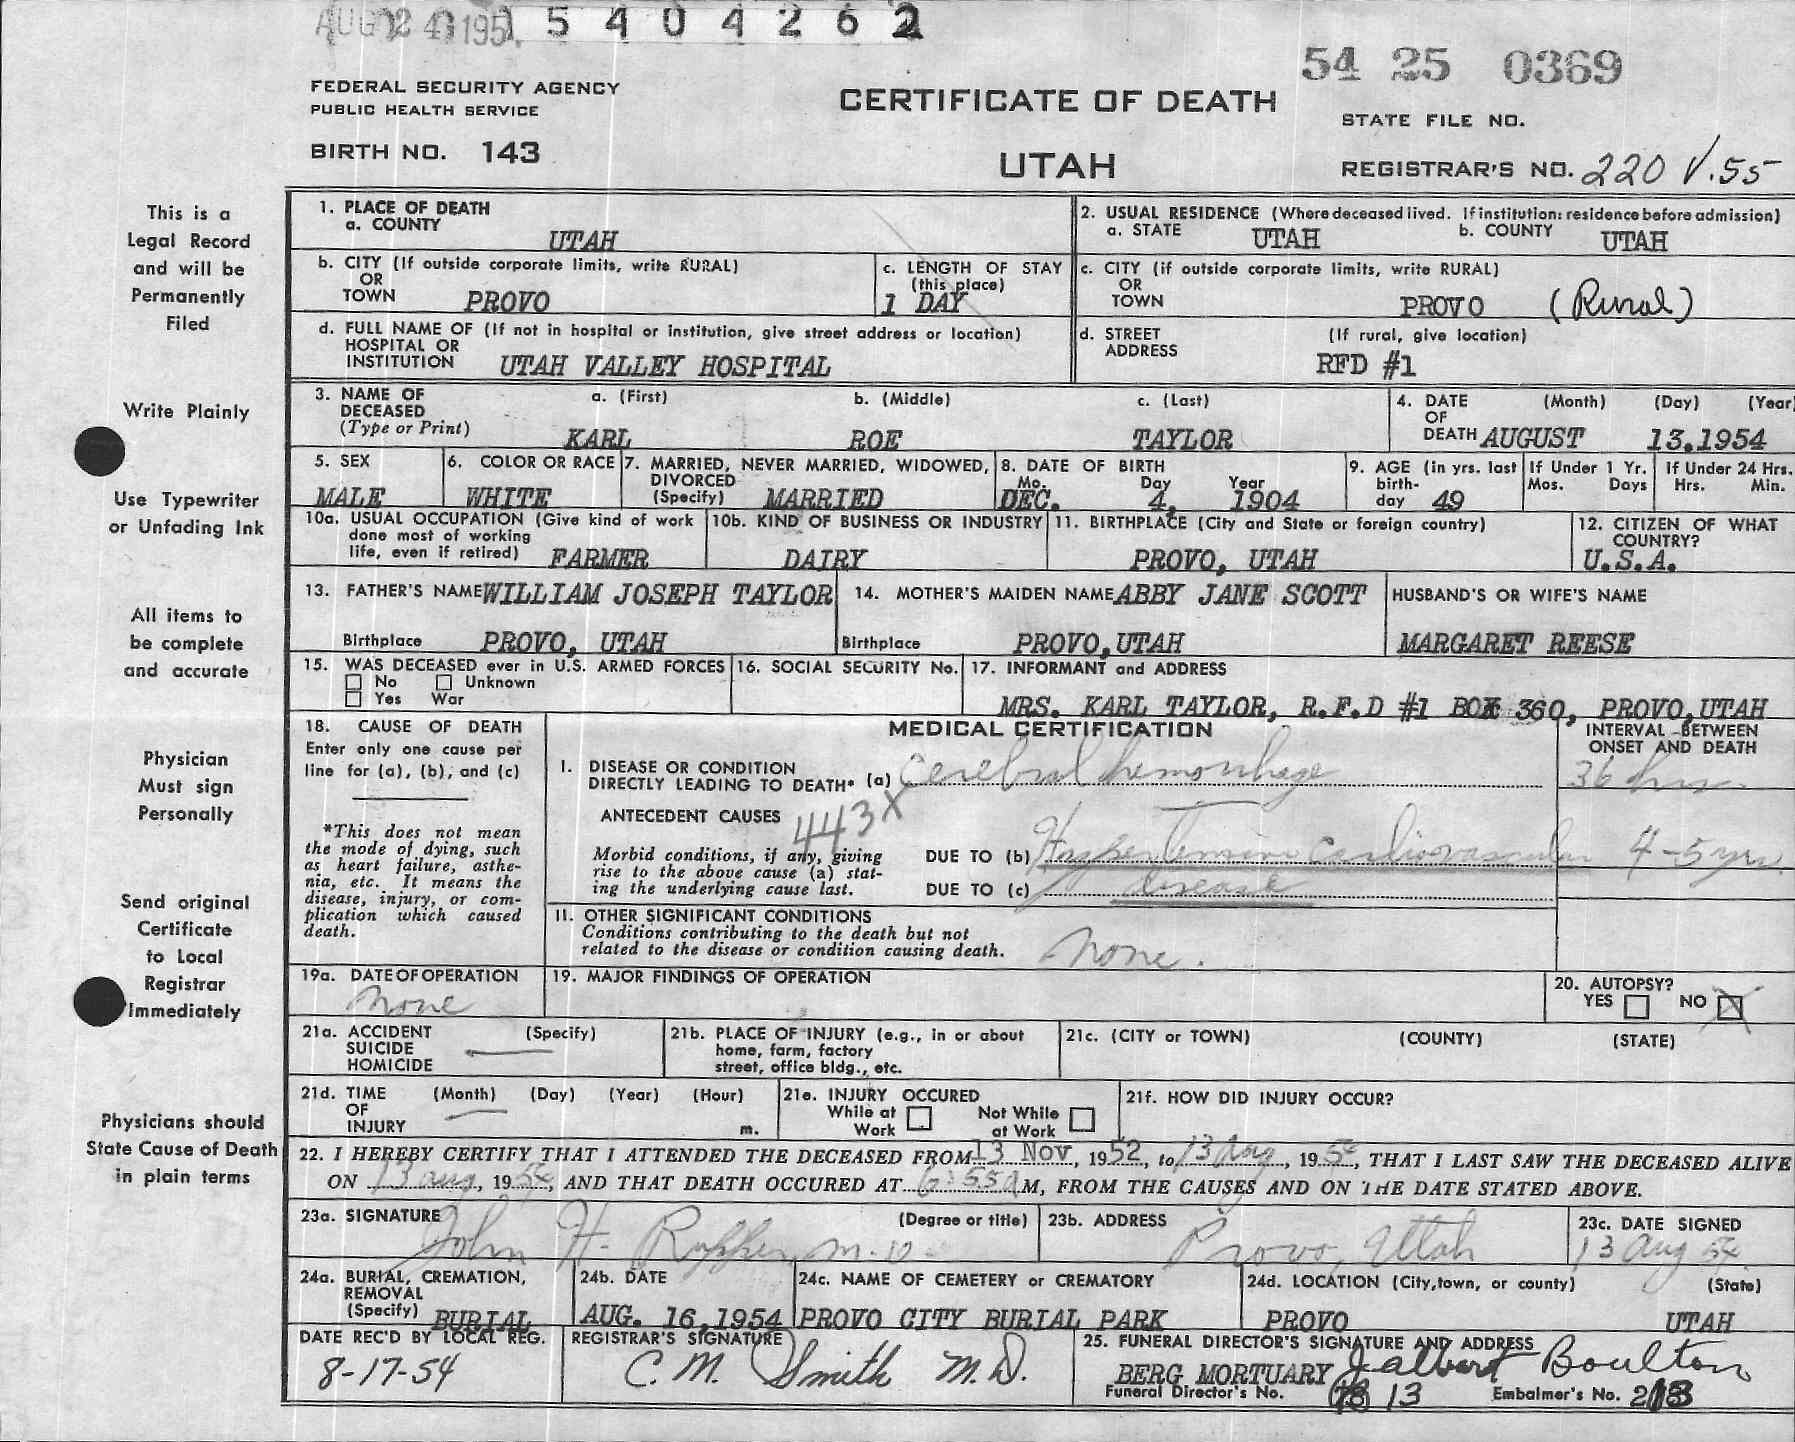 AUG 24 195
5 4 0 4 2 6 2
54 25 0369
FEDERAL SECURITY AGENCY
PUBLIC HEALTH SERVICE
CERTIFICATE OF DEATH
STATE FILE NO.
BIRTH NO. 143
UTAH
REGISTRAR'S NO. 220 V.55
This is a
Legal Record
and will be
Permanently
Filed
Write Plainly
Use Typewriter
or Unfading Ink
All items to
be complete
and accurate
Physician
Must sign
Personally
Send original
Certificate
to Local
Registrar
Immediately
Physicians should
State Cause of Death
in plain terms
1. PLACE OF DEATH
a. COUNTY
UTAH
2. USUAL RESIDENCE (Where deceased lived. If institution: residence before admission)
a. STATE UTAH b. COUNTY UTAH
b. CITY (If outside corporate limits, write RURAL)
OR
TOWN PROVO
c. LENGTH OF STAY
(this place)
1 DAY
c. CITY (if outside corporate limits, write RURAL)
OR
TOWN PROVO (Rural)
d. FULL NAME OF (If not in hospital or institution, give street address or location)
HOSPITAL OR
INSTITUTION UTAH VALLEY HOSPITAL
d. STREET (If rural, give location)
ADDRESS RFD #1
3. NAME OF a. (First) b. (Middle) c. (Last)
DECEASED
(Type or Print) KARL ROE TAYLOR
4. DATE (Month) (Day) (Year)
OF
DEATH AUGUST 13.1954
5. SEX
MALE
6. COLOR OR RACE
WHITE
7. MARRIED, NEVER MARRIED, WIDOWED,
DIVORCED
(Specify) MARRIED
8. DATE OF BIRTH
Mo. Day Year
DEC. 4, 1904
9. AGE (in yrs. last
birth-
day 49
If Under 1 Yr.
Mos. Days
If Under 24 Hrs.
Hrs. Min.
10a. USUAL OCCUPATION (Give kind of work
done most of working
life, even if retired) FARMER
10b. KIND OF BUSINESS OR INDUSTRY
DAIRY
11. BIRTHPLACE (City and State or foreign country)
PROVO, UTAH
12. CITIZEN OF WHAT
COUNTRY?
U.S.A.
13. FATHER'S NAME WILLIAM JOSEPH TAYLOR
Birthplace PROVO, UTAH
14. MOTHER'S MAIDEN NAME ABBY JANE SCOTT
Birthplace PROVO,UTAH
HUSBAND'S OR WIFE'S NAME
MARGARET REESE
15. WAS DECEASED ever in U.S. ARMED FORCES
No Unknown
Yes War
16. SOCIAL SECURITY No.
17. INFORMANT and ADDRESS
MRS. KARL TAYLOR, R.F.D #1 BOX 360, PROVO,UTAH
18. CAUSE OF DEATH
Enter only one cause per
line for (a), (b), and (c)
*This does not mean
the mode of dying, such
as heart failure, asthe-
nia, etc. It means the
disease, injury, or com-
plication which caused
death.
MEDICAL CERTIFICATION
INTERVAL BETWEEN
ONSET AND DEATH
I. DISEASE OR CONDITION
DIRECTLY LEADING TO DEATH* (a) Cerebral hemorrhage 36 hrs.
ANTECEDENT CAUSES 443X
Morbid conditions, if any, giving
rise to the above cause (a) stat-
ing the underlying cause last.
DUE TO (b) Hypertensive cardiovascular 4-5 yrs.
DUE TO (c) disease
II. OTHER SIGNIFICANT CONDITIONS
Conditions contributing to the death but not
related to the disease or condition causing death. None.
19a. DATE OF OPERATION
None
19. MAJOR FINDINGS OF OPERATION
20. AUTOPSY?
YES NO X
21a. ACCIDENT (Specify)
SUICIDE
HOMICIDE
21b. PLACE OF INJURY (e.g., in or about
home, farm, factory
street, office bldg., etc.
21c. (CITY or TOWN) (COUNTY) (STATE)
21d. TIME (Month) (Day) (Year) (Hour)
OF
INJURY m.
21e. INJURY OCCURED
While at Work Not While at Work
21f. HOW DID INJURY OCCUR?
22. I HEREBY CERTIFY THAT I ATTENDED THE DECEASED FROM 13 Nov, 1952, to 13 Aug, 1954, THAT I LAST SAW THE DECEASED ALIVE
ON 13 aug, 1954, AND THAT DEATH OCCURED AT 6:55 AM, FROM THE CAUSES AND ON THE DATE STATED ABOVE.
23a. SIGNATURE (Degree or title)
John H. Rupper, M.D.
23b. ADDRESS
Provo, Utah
23c. DATE SIGNED
13 Aug 54
24a. BURIAL, CREMATION,
REMOVAL
(Specify) BURIAL
24b. DATE
AUG. 16,1954
24c. NAME OF CEMETERY or CREMATORY
PROVO CITY BURIAL PARK
24d. LOCATION (City,town, or county) (State)
PROVO UTAH
DATE REC'D BY LOCAL REG.
8-17-54
REGISTRAR'S SIGNATURE
C. M. Smith M.D.
25. FUNERAL DIRECTOR'S SIGNATURE AND ADDRESS
BERG MORTUARY Boulton
Funeral Director's No. 13 Embalmer's No.